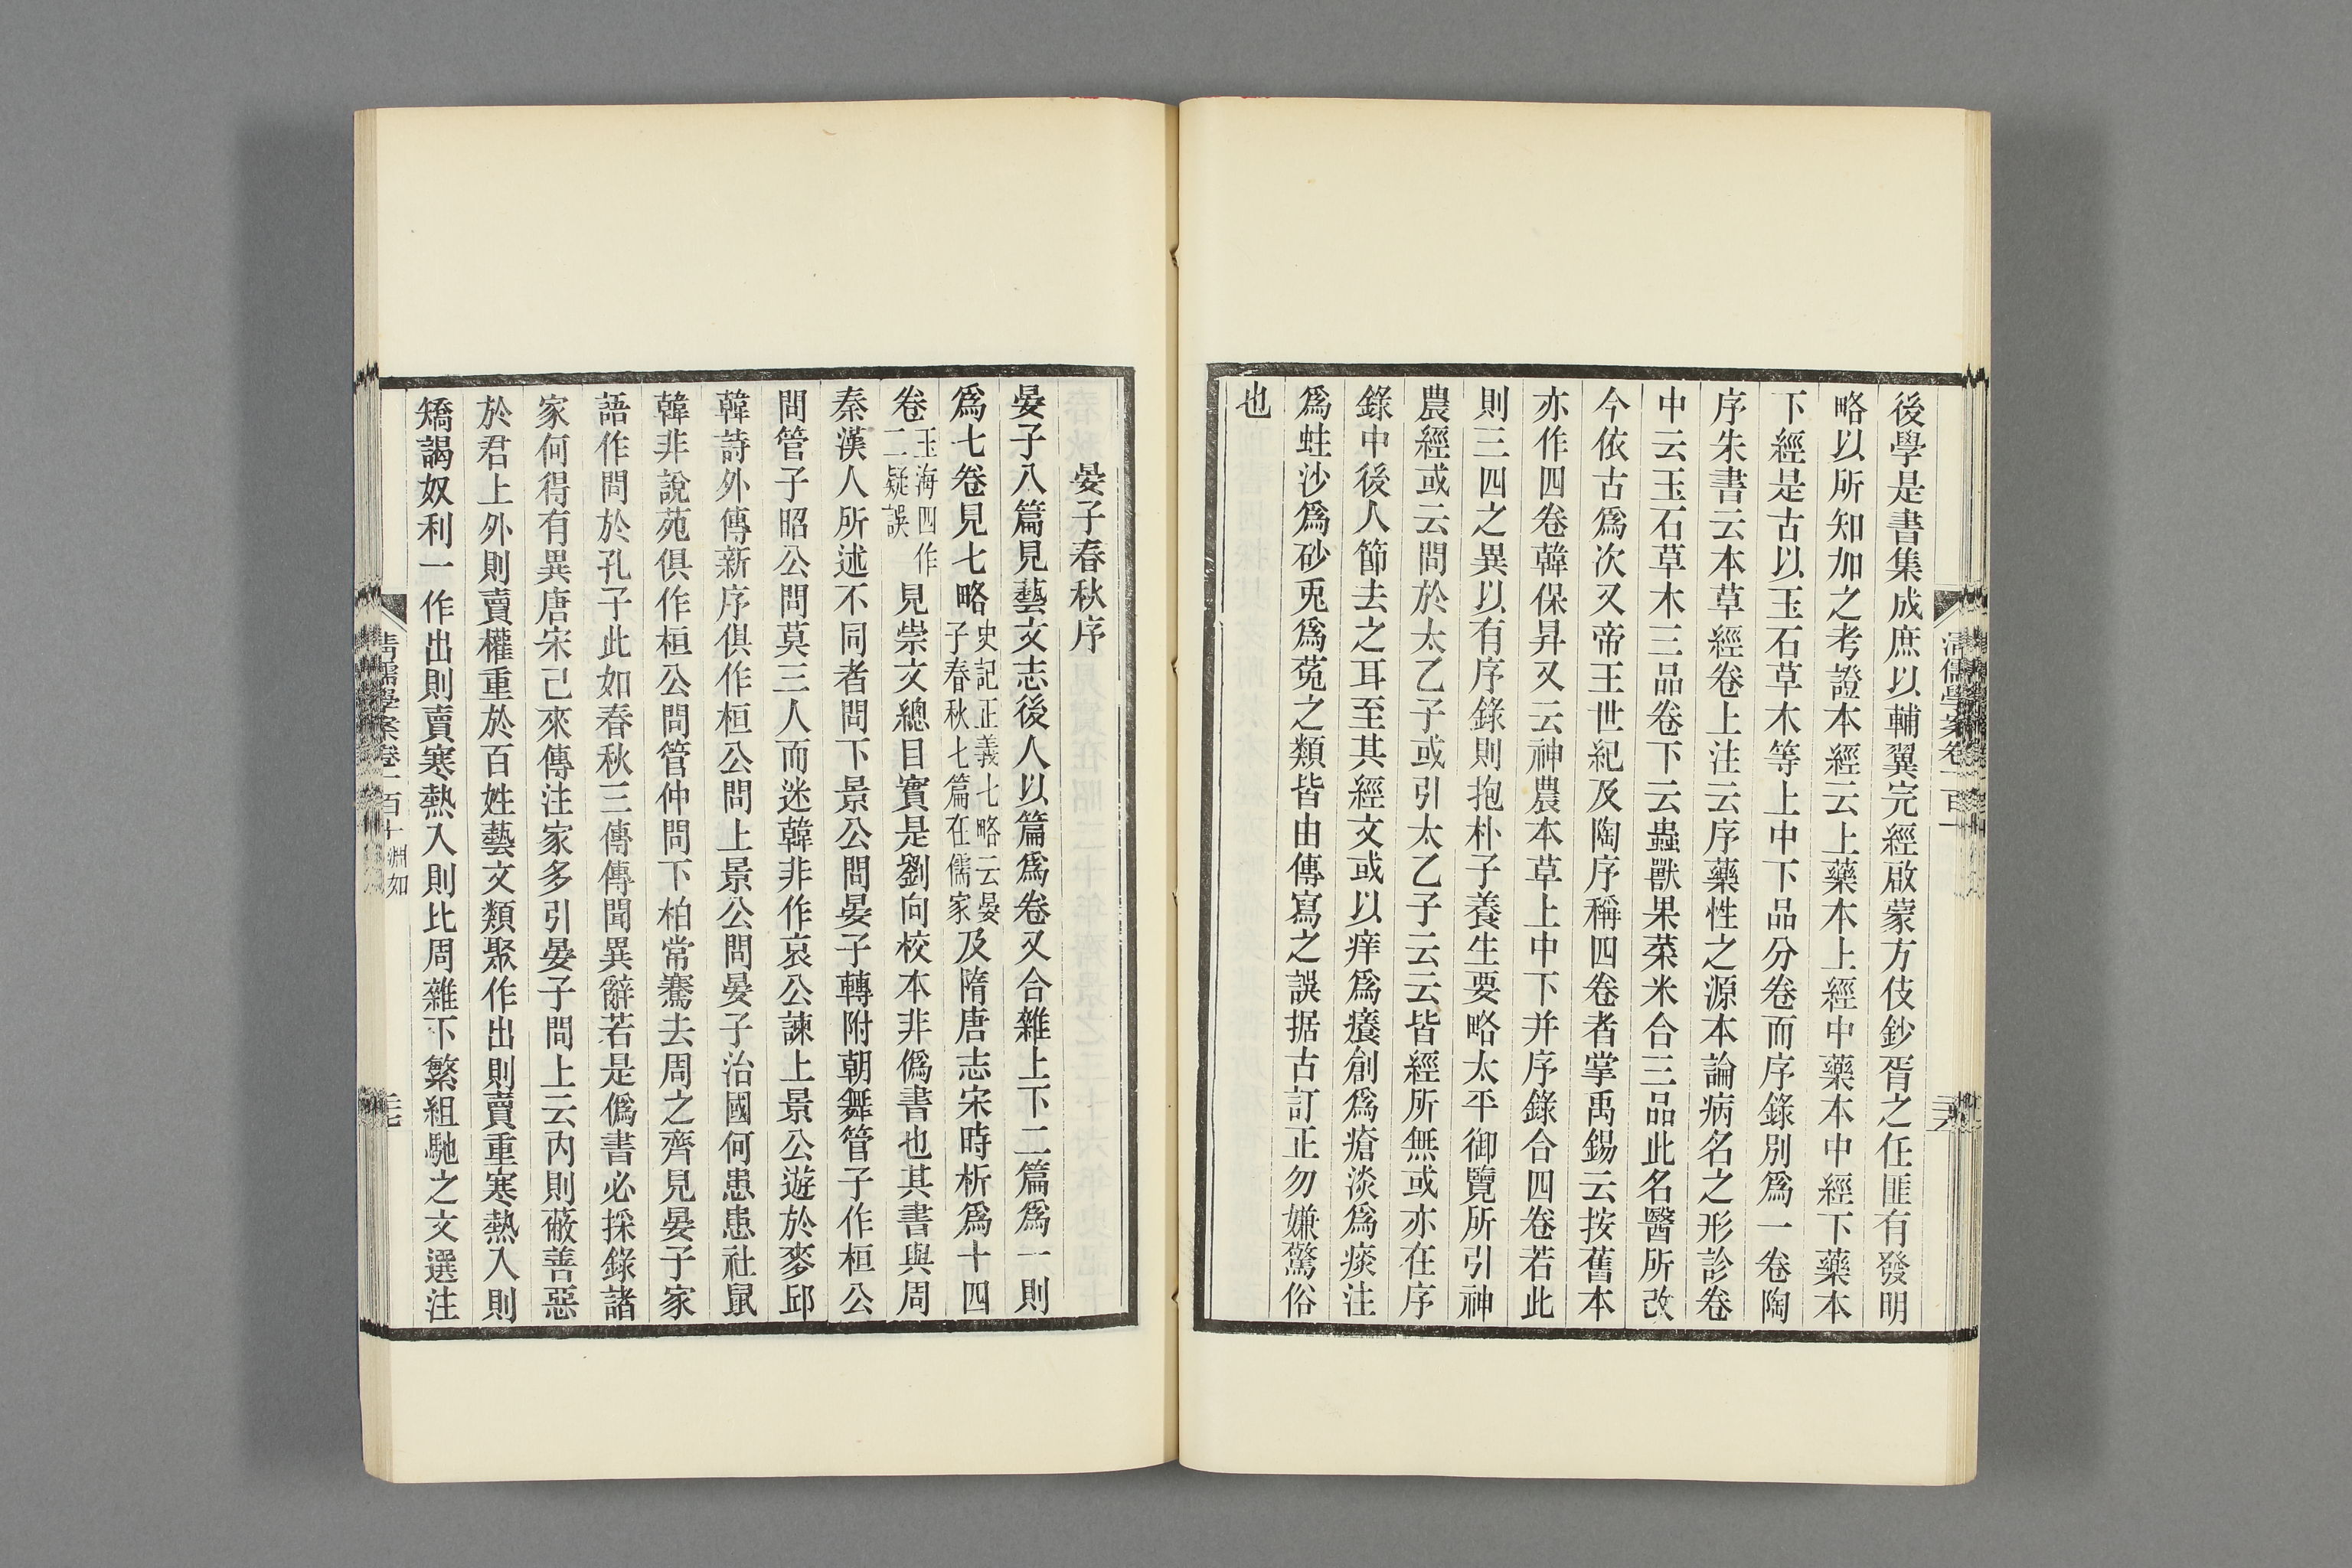 後學是書集成庶以輔翼完經啟蒙方伎鈔胥之任匪有發明
略以所知加之考證本經云上藥本上經中藥本中經下藥本
下經是古以玉石草木等上中下品分卷而序錄別爲一卷陶
序朱書云本草經卷上注云序藥性之源本論病名之形診卷
中云玉石草木三品卷下云蟲獸果菜米合三品此名醫所改
今依古爲次又帝王世紀及陶序稱四卷者掌禹錫云按舊本
亦作四卷韓保昇又云神農本草上中下并序錄合四卷若此
則三四之異以有序錄則抱朴子養生要略太平御覽所引神
農經或云問於太乙子或引太乙子云云皆經所無或亦在序
錄中後人節去之耳至其經文或以痒爲癢創爲瘡淡爲痰注
爲蛀沙爲砂兎爲菟之類皆由傳寫之誤据古訂正勿嫌驚俗
也
晏子春秋序
晏子八篇見藝文志後人以篇爲卷又合雜上下二篇爲一則
爲七卷見七略史記正義七略云晏子春秋七篇在儒家及隋唐志宋時析爲十四
卷玉海四作二疑誤見崇文總目實是劉向校本非僞書也其書與周
秦漢人所述不同者問下景公問晏子轉附朝舞管子作桓公
問管子昭公問莫三人而迷韓非作哀公諫上景公遊於麥邱
韓詩外傳新序俱作桓公問上景公問晏子治國何患患社鼠
韓非說苑俱作桓公問管仲問下柏常騫去周之齊見晏子家
語作問於孔子此如春秋三傳傳聞異辭若是僞書必採錄諸
家何得有異唐宋已來傳注家多引晏子問上云內則蔽善惡
於君上外則賣權重於百姓藝文類聚作出則賣重寒熱入則
矯謁奴利一作出則賣寒熱入則比周雜下繁組馳之文選注
清儒學案卷一百十 淵如